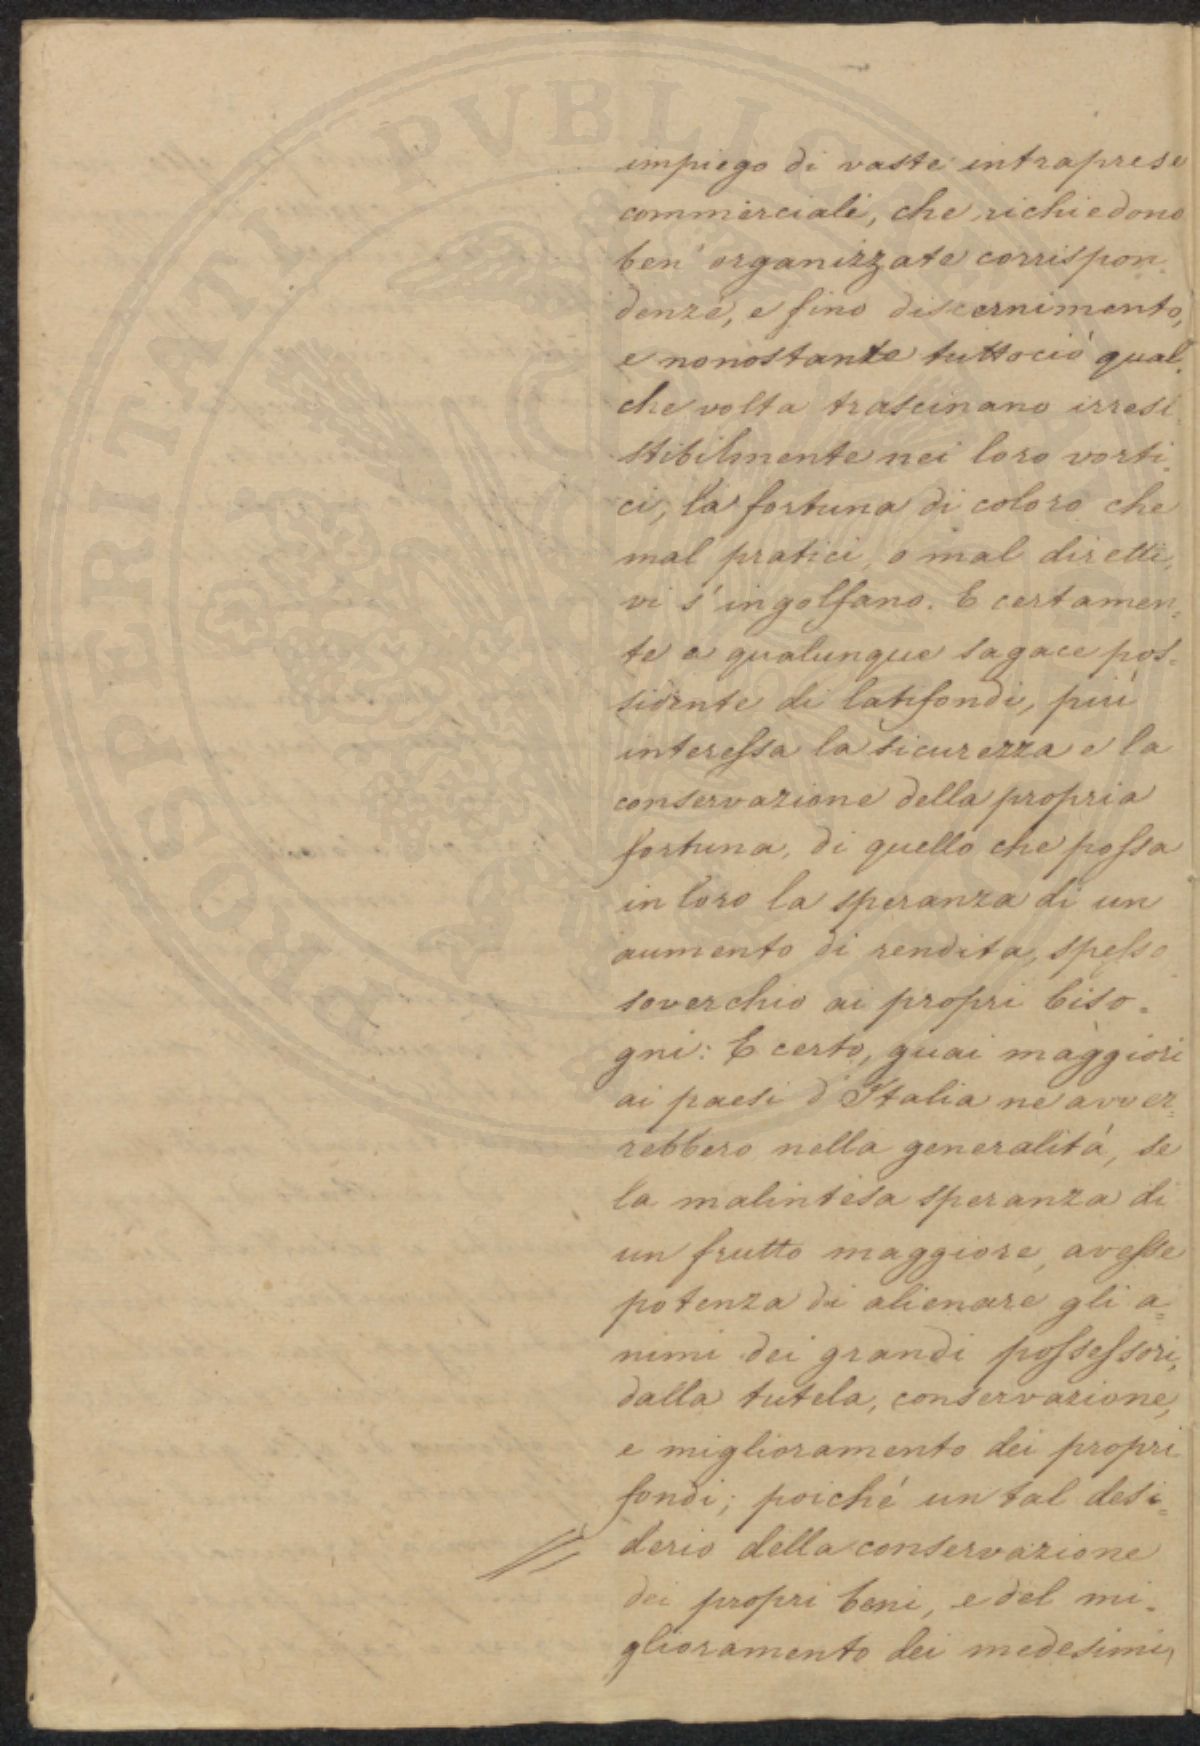 impiego di vaste intraprese
commerciali, che richiedono
ben' organizzate corrispon=
denze, e fino discernimento,
e nonostante tuttociò qual=
che volta trascinano irresi=
stibilmente nei loro vorti=
ci, la fortuna di coloro che
mal pratici, o mal diretti,
vi s'ingolfano. E certamen=
te a qualunque sagace pos=
sidente di latifondi, più
interessa la sicurezza e la
conservazione della propria
fortuna, di quello che possa
in loro la speranza di un
aumento di rendita, spesso
soverchio ai propri biso=
gni: E certo, guai maggiori
ai paesi d'Italia ne avver=
rebbero nella generalità, se
la malintesa speranza di
un frutto maggiore, avesse
potenza di alienare gli a=
nimi dei grandi possessori,
dalla tutela, conservazione,
e miglioramento dei propri
fondi; poiché un tal desi=
derio della conservazione
dei propri beni, e del mi=
glioramento dei medesimi,
PROSPERITATI PVBLICAE